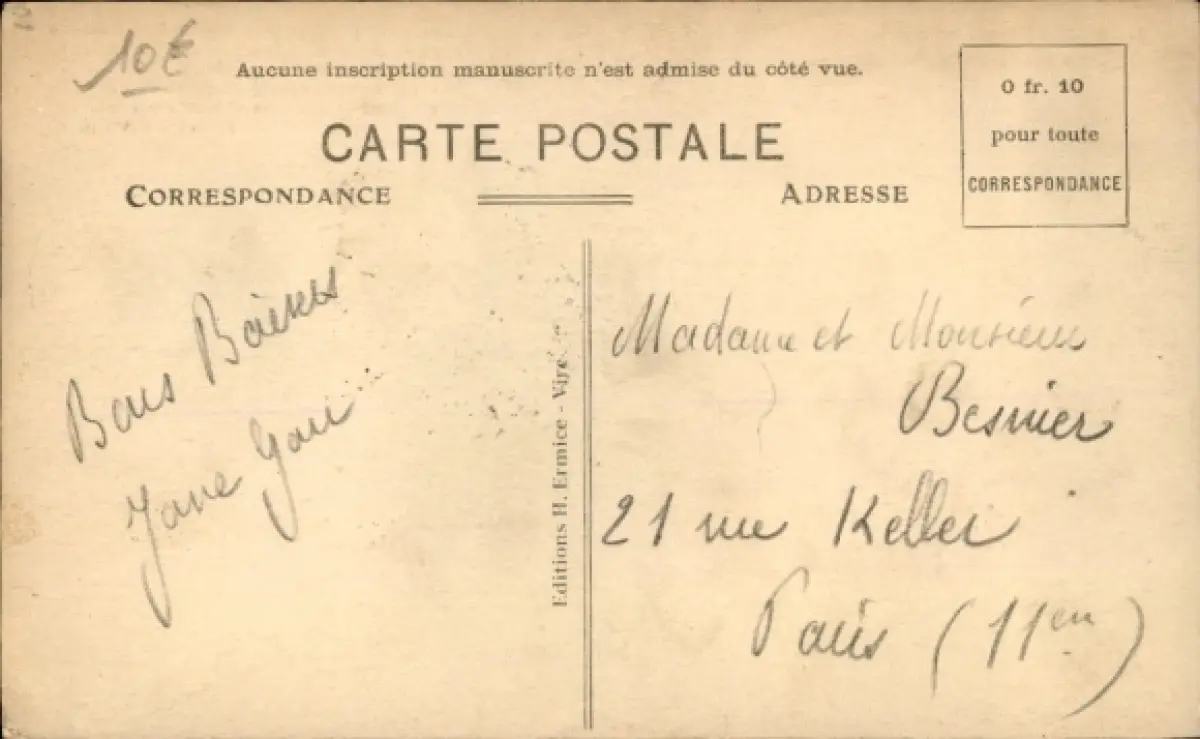 10€
Aucune inscription manuscrite n'est admise du côté vue.
0 fr. 10
pour toute
CORRESPONDANCE
CARTE POSTALE
CORRESPONDANCE
ADRESSE
Bons Baisers
Editions H. Ermice - Vire
Madame et Monsieur
Besnier
21 rue Keller
Paris (11en)